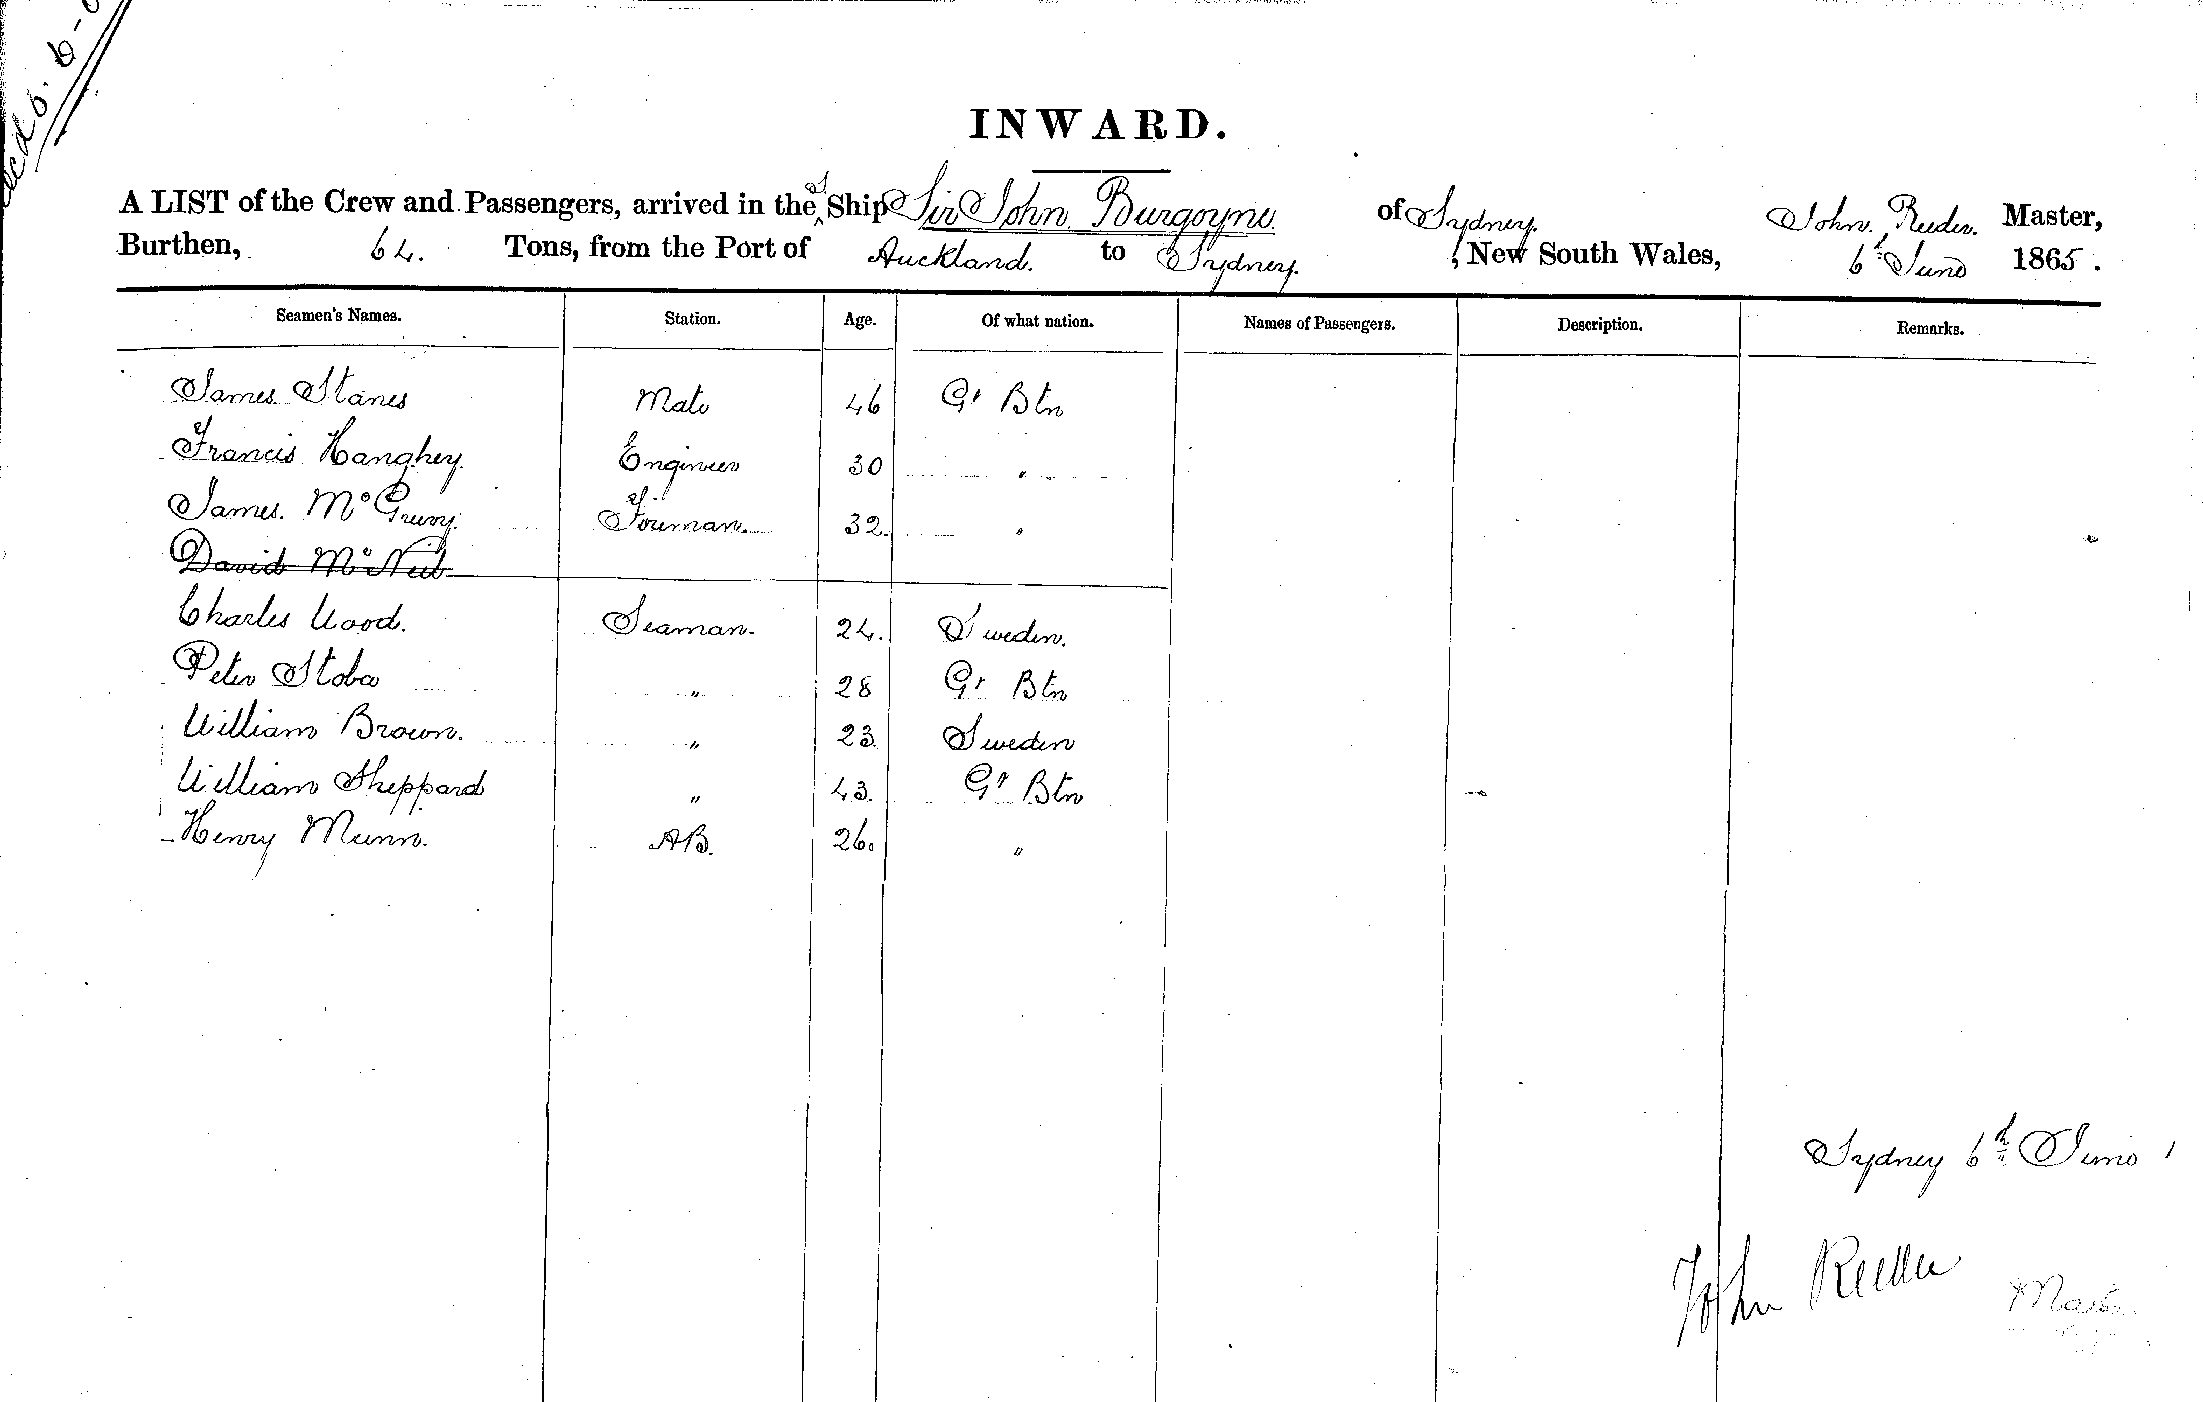 INWARD.
A LIST of the Crew and Passengers, arrived in the S Ship Sir John Burgoyne of Sydney. John Reeder. Master,
Burthen, 64. Tons, from the Port of Auckland. to Sydney. , New South Wales, 6th June 1865.
Seamen's Names. Station. Age. Of what nation. Names of Passengers. Description. Remarks.
James Stanes Mate 46 Gt Btn
Francis Hanghey Engineer 30 "
James McGreevy. Foreman. 32. "
David McNeil
Charles Wood. Seaman. 24. Sweden.
Peter Stoba " 28 Gt Btn
William Brown. " 23. Sweden
William Sheppard " 43. Gt Btn
Henry Munn. AB. 26. "
Sydney 6th June
John Reeder Master